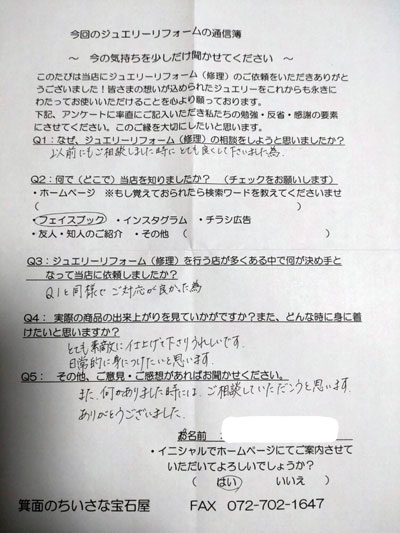 今回のジュエリーリフォームの通信簿
～ 今の気持ちを少しだけ聞かせてください ～
このたびは当店にジュエリーリフォーム（修理）のご依頼をいただきありがと
うございました！皆さまの想いが込められたジュエリーをこれからも永きに
わたってお使いいただけることを心より願っております。
下記、アンケートに率直にご記入いただき私たちの勉強・反省・感謝の要素
にさせてください。このご縁を大切にしたいと思います。
Q1：なぜ、ジュエリーリフォーム（修理）の相談をしようと思いましたか？
以前にもご相談しました時にとても良くして下さいました為。
Q2：何で（どこで）当店を知りましたか？（チェックをお願いします）
・ホームページ ※もし覚えておられたら検索ワードを教えてくださいませ
（ ）
・フェイスブック ・インスタグラム ・チラシ広告
・友人・知人のご紹介 ・その他（ ）
Q3：ジュエリーリフォーム（修理）を行う店が多くある中で何が決め手と
なって当店に依頼しましたか？
Q1と同様でご対応が良かった為
Q4： 実際の商品の出来上がりを見ていかがですか？また、どんな時に身に着
けたいと思いますか？
とても素敵に仕上げて下さりうれしいです。
日常的に身につけたいと思います。
Q5： その他、ご意見・ご感想があればお聞かせください。
また、何かありました時には、ご相談していただこうと思います。
ありがとうございました。
お名前：
・イニシャルでホームページにてご案内させて
いただいてよろしいでしょうか？
（ はい いいえ ）
箕面のちいさな宝石屋 FAX 072-702-1647